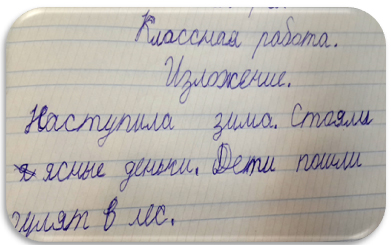 Классная работа.
Изложение.
Наступила зима. Стояли
ясные деньки. Дети пошли
гулят в лес.